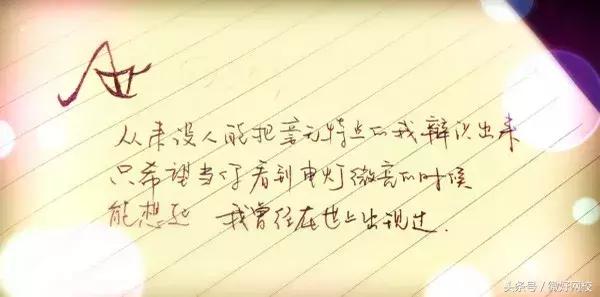 Ar
从来没人能把毫无特点的我辩识出来
只希望当你看到电灯微亮的时候
能想起 我曾经在世上出现过.
头条号 / 微好网校